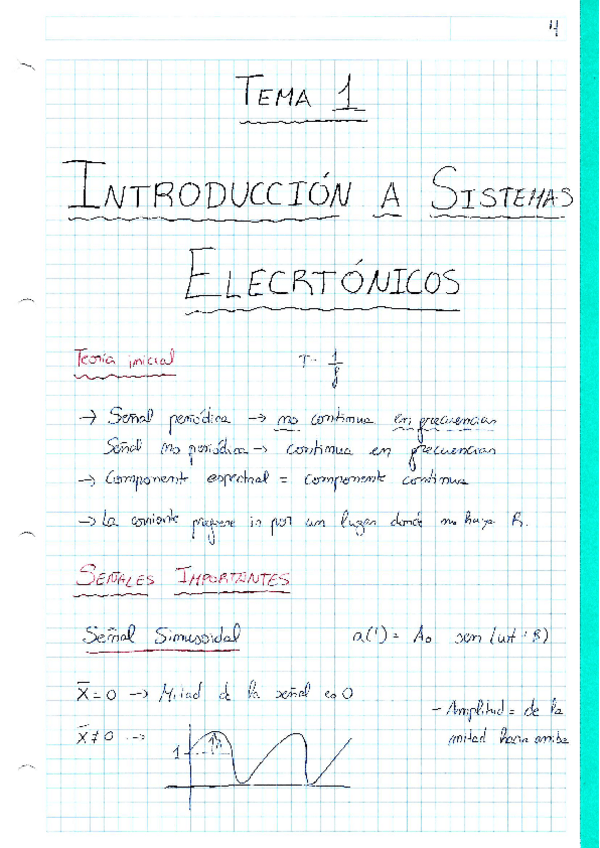 4
TEMA 1
INTRODUCCIÓN A SISTEMAS
ELECRTÓNICOS
Teoría inicial T = 1/f
→ Señal periódica → no continua en frecuencias
Señal no periódica → continua en frecuencias
→ Component espectral = componente continua
→ La corriente prefiere ir por un lugar donde no haya R.
SEÑALES IMPORTANTES
Señal Sinusoidal a(t) = A₀ sen (wt + B)
X̄ = 0 → Mitad de la señal es 0
- Amplitud = de la
X̄ ≠ 0 → mitad hacia arriba
1